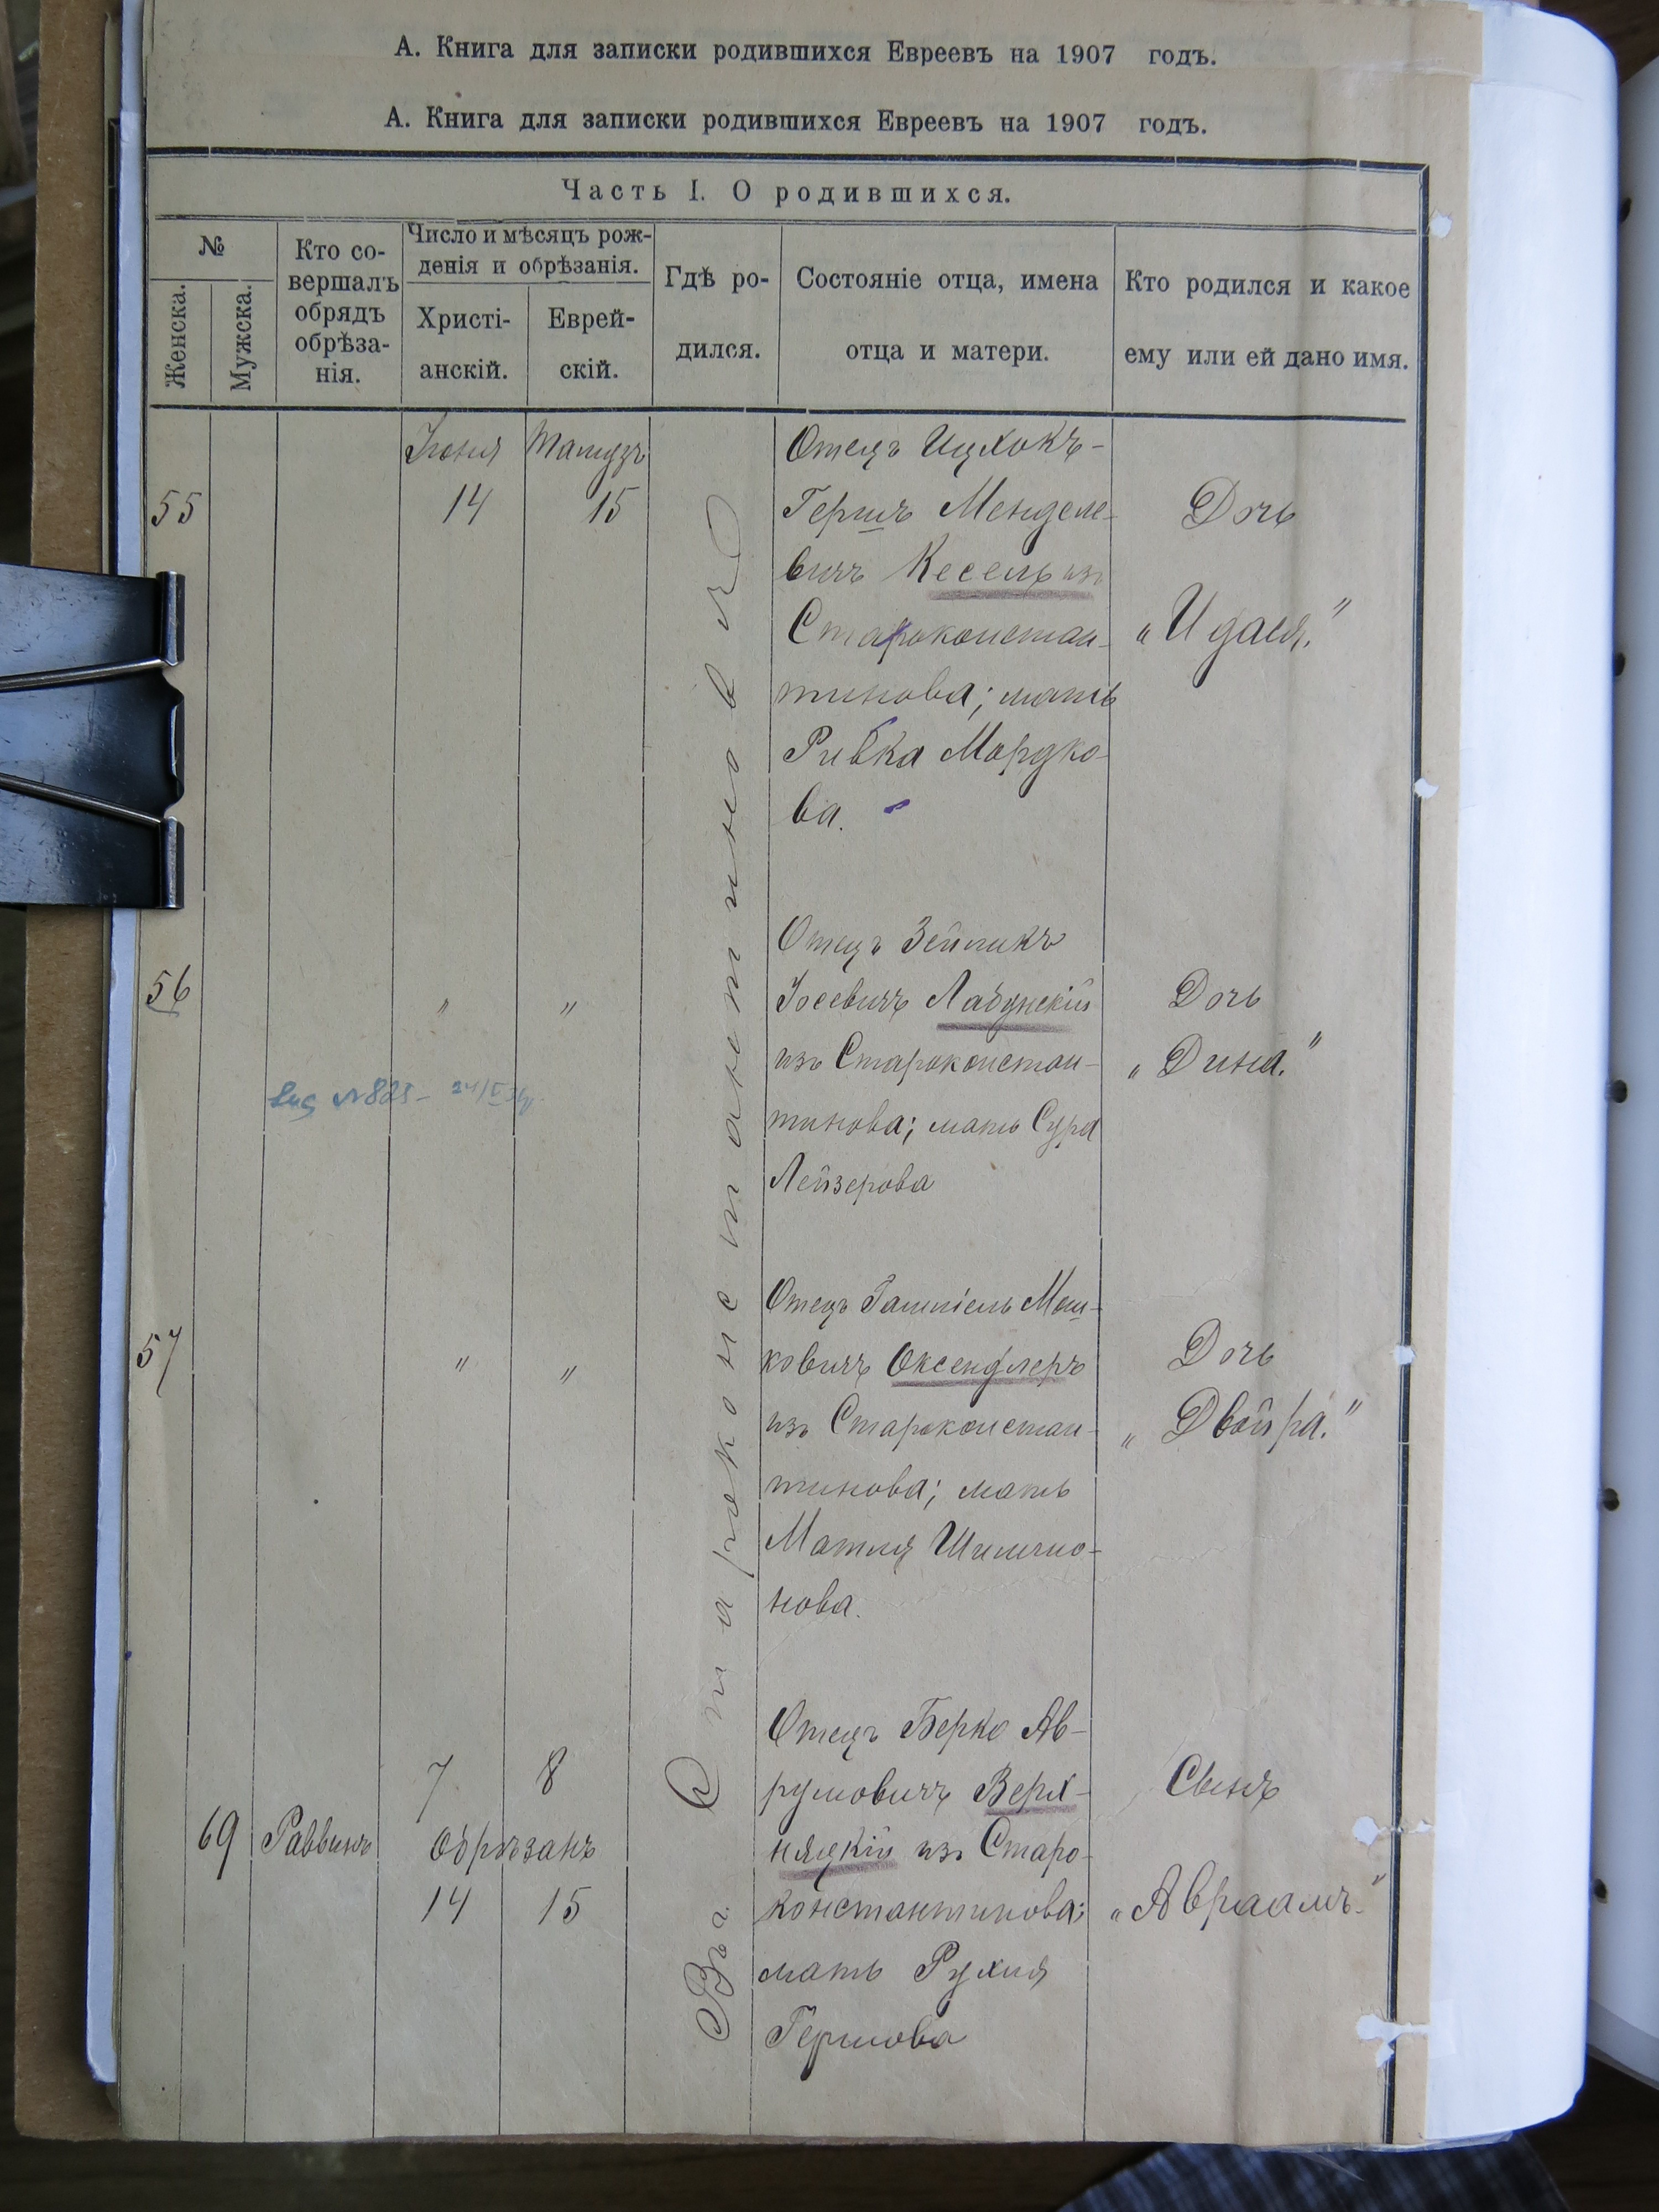 А. Книга для записки родившихся Евреевъ на 1907 годъ.
А. Книга для записки родившихся Евреевъ на 1907 годъ.
Часть I. О родившихся.
№
Женска.
Мужска.
Кто со-
вершалъ
обрядъ
обрѣза-
нія.
Число и мѣсяцъ рож-
денія и обрѣзанія.
Христі-
анскій.
Еврей-
скій.
Гдѣ ро-
дился.
Состояніе отца, имена
отца и матери.
Кто родился и какое
ему или ей дано имя.
Въ г. Староконстантиновѣ
55
Іюня Тамузъ
14 15
Отецъ Ицхокъ-
Гершъ Менделе-
вичъ Кесель изъ
Староконстан-
тинова; мать
Ривка Мордко-
ва.
Дочь
„Идася.“
56
" "
Отецъ Зейликъ
Іосевичъ Лабунскій
изъ Староконстан-
тинова; мать Сура
Лейзерова
Дочь
„Дина.“
57
" "
Отецъ Гамшіель Мош-
ковичъ Оксендлеръ
изъ Староконстан-
тинова; мать
Матля Шимчо-
нова.
Дочь
„Двойра.“
69 Раввинъ
7 8
Обрѣзанъ
14 15
Отецъ Берко Ав-
румовичъ Верх-
няцкій изъ Старо-
константинова;
мать Рухля
Гершова
Сынъ
„Авраамъ.“